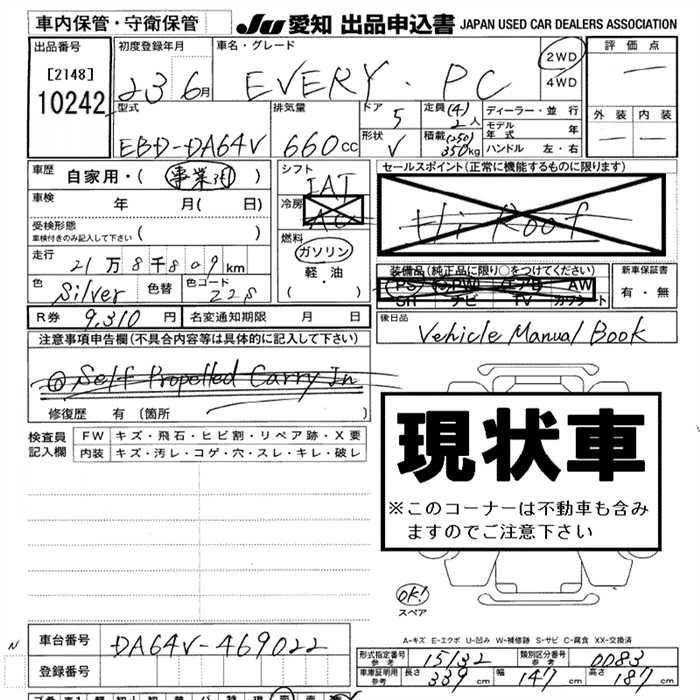 車内保管・守衛保管
JU 愛知 出品申込書 JAPAN USED CAR DEALERS ASSOCIATION
出品番号 初度登録年月 車名・グレード 2WD 評価点
[2148] 23 6月 EVERY . PC 4WD —
10242
型式 排気量 ドア 5 定員 (4) 2人 ディーラー・並行 外装 内装
モデル年式 年
EBD-DA64V 660cc 形状 V 積載 (250) 350kg ハンドル 左・右 — —
車歴 自家用・(事業用) シフト IAT セールスポイント(正常に機能するものに限ります)
車検 年 月( 日) 冷房 AC Hi Roof
受検形態 ( )
車検付きのみ記入して下さい
燃料 ガソリン
走行 21万8千809km 軽・油 装備品(純正品に限り○をつけてください) 新車保証書
色 Silver 色替 色コード Z2S ( ) PS PW エアB AW 有・無
SR ナビ TV カワシート
R券 9,310円 名変通知期限 月 日 後日品
Vehicle Manual Book
注意事項申告欄(不具合内容等は具体的に記入して下さい)
Self Propelled Carry In
修復歴 有 〔箇所
検査員 FW キズ・飛石・ヒビ割・リペア跡・X要
記入欄 内装 キズ・汚レ・コゲ・穴・スレ・キレ・破レ
現状車
※このコーナーは不動車も含み
ますのでご注意下さい
OK!
スペア
A-キズ E-エクボ U-凹み W-補修跡 S-サビ C-腐食 XX-交換済
N 車台番号 DA64V-469022
型式指定番号 参考 15132 類別区分番号 参考 0083
登録番号 車庫証明用 参考 長さ 339 幅 147 高さ 187